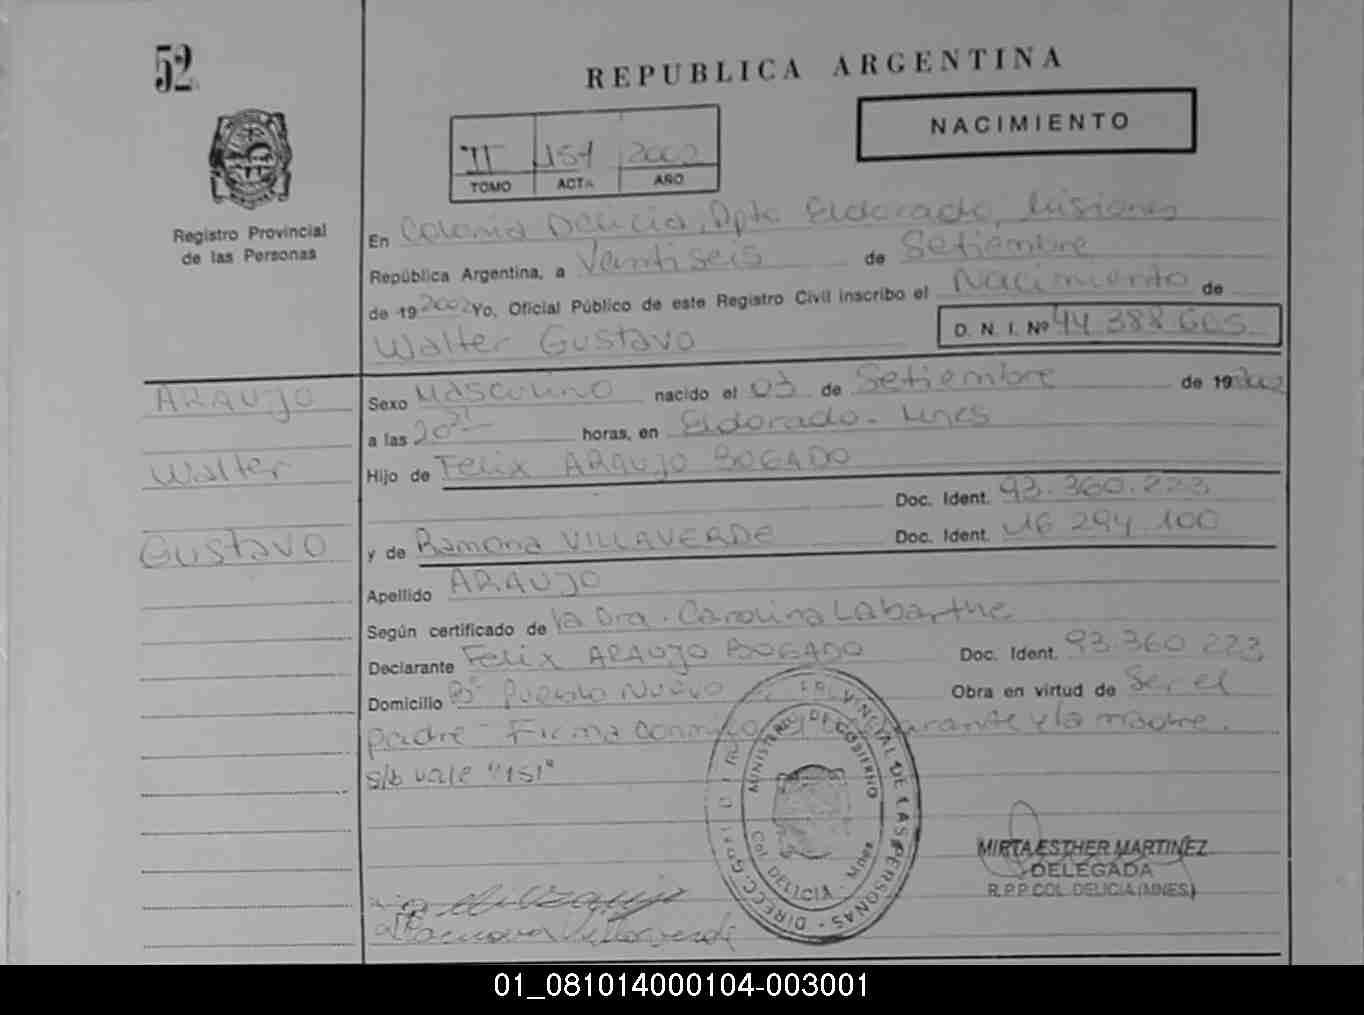 52
REPUBLICA ARGENTINA
NACIMIENTO
II 151 2002
TOMO ACTA AÑO
Registro Provincial
de las Personas
En Colonia Delicia, Dpto Eldorado, Misiones
República Argentina, a Ventiseis de Setiembre
de 19 2002 Yo, Oficial Público de este Registro Civil inscribo el Nacimiento de
Walter Gustavo D. N. I. Nº 44 388 605
ARAUJO
Walter
Gustavo
Sexo Masculino nacido el 03 de Setiembre de 19 2002
a las 20 horas, en Eldorado - Mnes
Hijo de Felix ARAUJO BOGADO
Doc. Ident. 93.360.223
y de Ramona VILLAVERDE Doc. Ident. 16 294 100
Apellido ARAUJO
Según certificado de la Dra. Carolina Labarthe
Declarante Felix ARAUJO BOGADO Doc. Ident. 93 360 223
Domicilio Bº Pueblo Nuevo Obra en virtud de Ser el
padre - Firma conmigo declarante y la madre.
s/b vale "151"
DIRECC. GRAL. PROVINCIAL DE LAS PERSONAS
MINISTERIO DE GOBIERNO
Col. DELICIA - Mnes
MIRTA ESTHER MARTINEZ
DELEGADA
R.P.P COL. DELICIA (MNES)
Ramona Villaverde
01_081014000104-003001